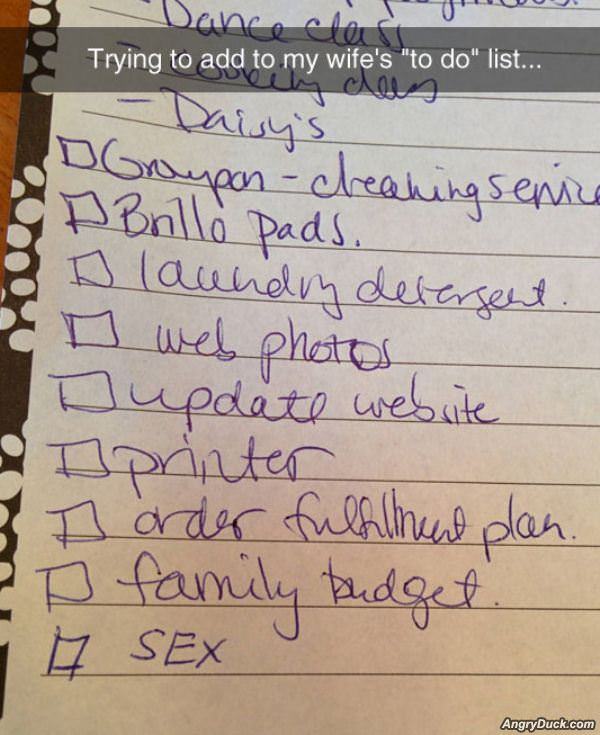 Dance class
Trying to add to my wife's "to do" list...
- Daisy's
Groupon - cleaning service
Brillo pads.
laundry detergent.
web photos
update website
printer
order fulfillment plan.
family budget.
SEX
AngryDuck.com